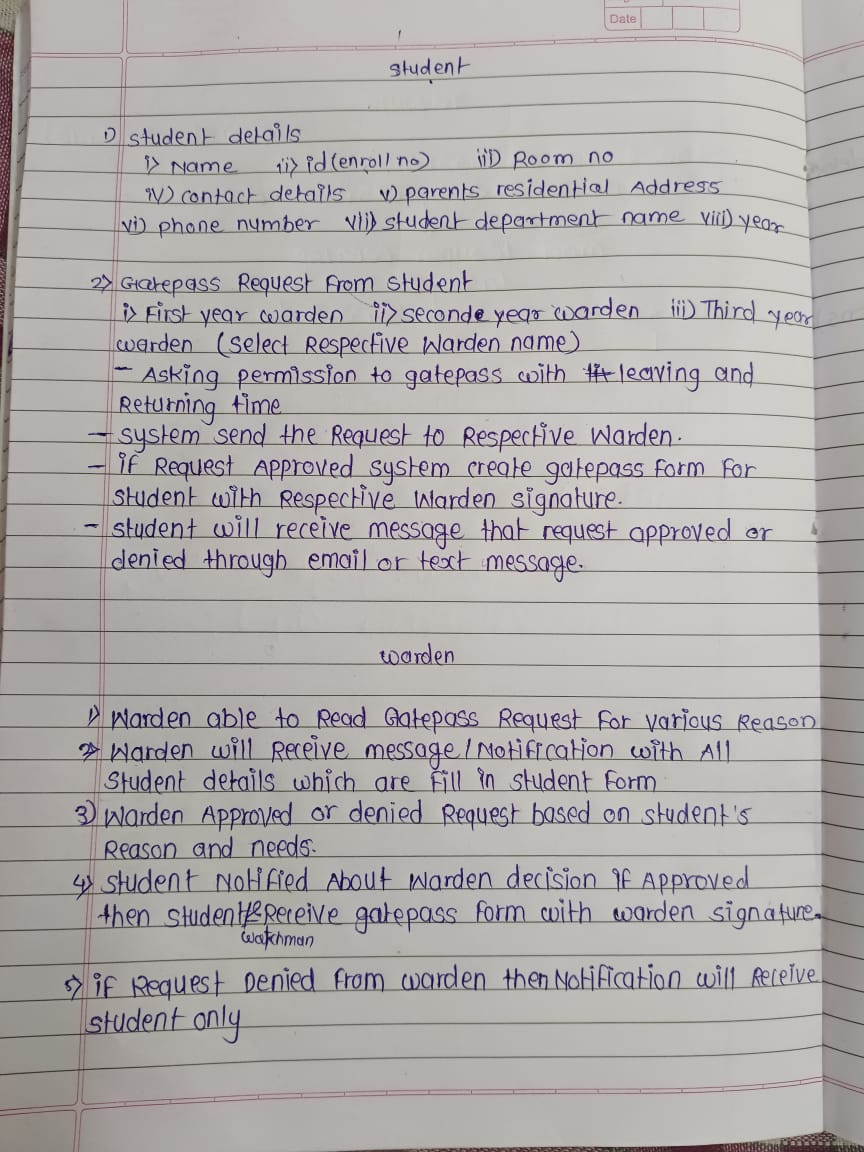 Date
student
1) student details
i) Name ii) id(enroll no) iii) Room no
iv) contact details v) parents residential Address
vi) phone number vii) student department name viii) year
2) Gatepass Request From student
i) First year warden ii) seconde year warden iii) Third year
warden (select Respective Warden name)
- Asking permission to gatepass with leaving and
Returning time
- system send the Request to Respective Warden.
- if Request Approved system create gatepass form for
student with Respective Warden signature.
- student will receive message that request approved or
denied through email or text message.
warden
1) Warden able to Read Gatepass Request For various Reason
2) Warden will Receive message/Notification with All
student details which are fill in student Form
3) Warden Approved or denied Request based on student's
Reason and needs.
4) student Notified About Warden decision if Approved
then student & Receive gatepass form with warden signature.
watchman
5) if Request Denied from warden then Notification will Receive
student only